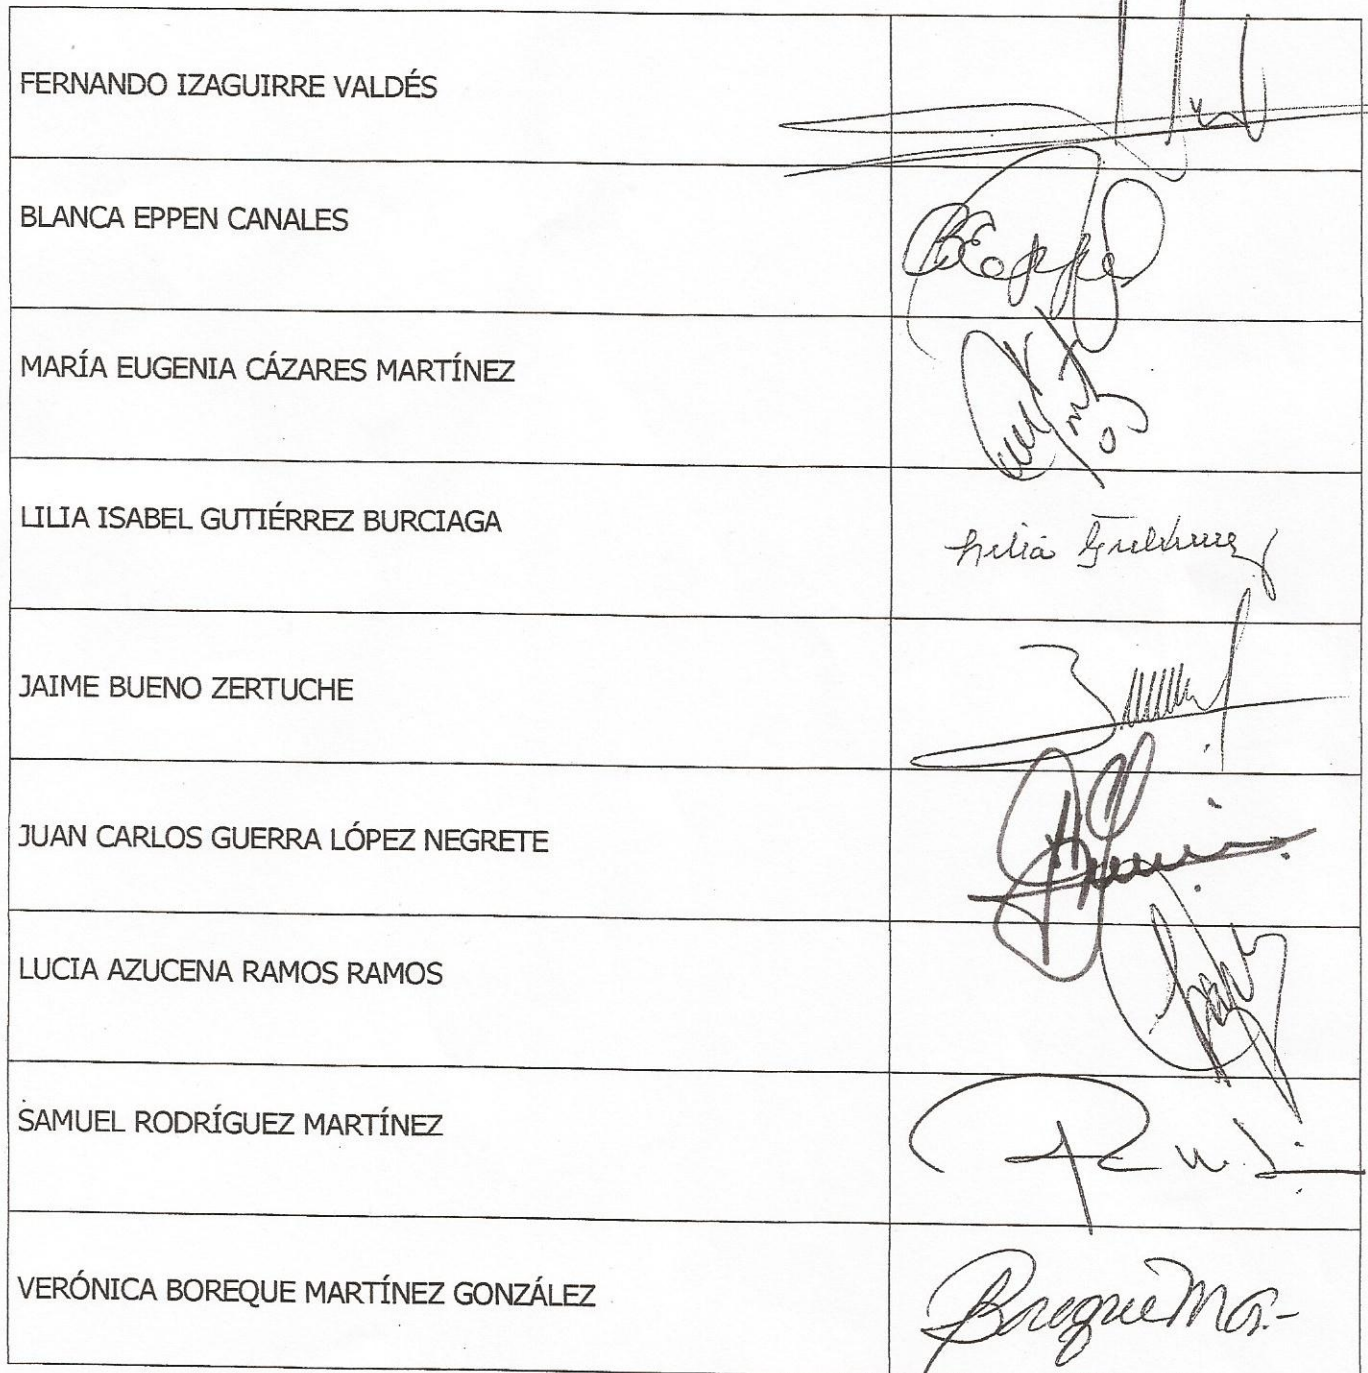 FERNANDO IZAGUIRRE VALDÉS
BLANCA EPPEN CANALES
BEppe
MARÍA EUGENIA CÁZARES MARTÍNEZ
LILIA ISABEL GUTIÉRREZ BURCIAGA
Lilia Gutiérrez
JAIME BUENO ZERTUCHE
JUAN CARLOS GUERRA LÓPEZ NEGRETE
LUCIA AZUCENA RAMOS RAMOS
SAMUEL RODRÍGUEZ MARTÍNEZ
VERÓNICA BOREQUE MARTÍNEZ GONZÁLEZ
Boreque